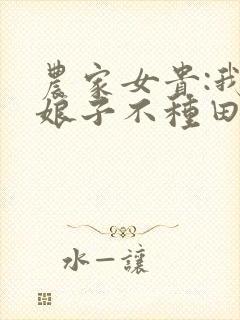 農家女貴:我
娘子不種田
水一讓